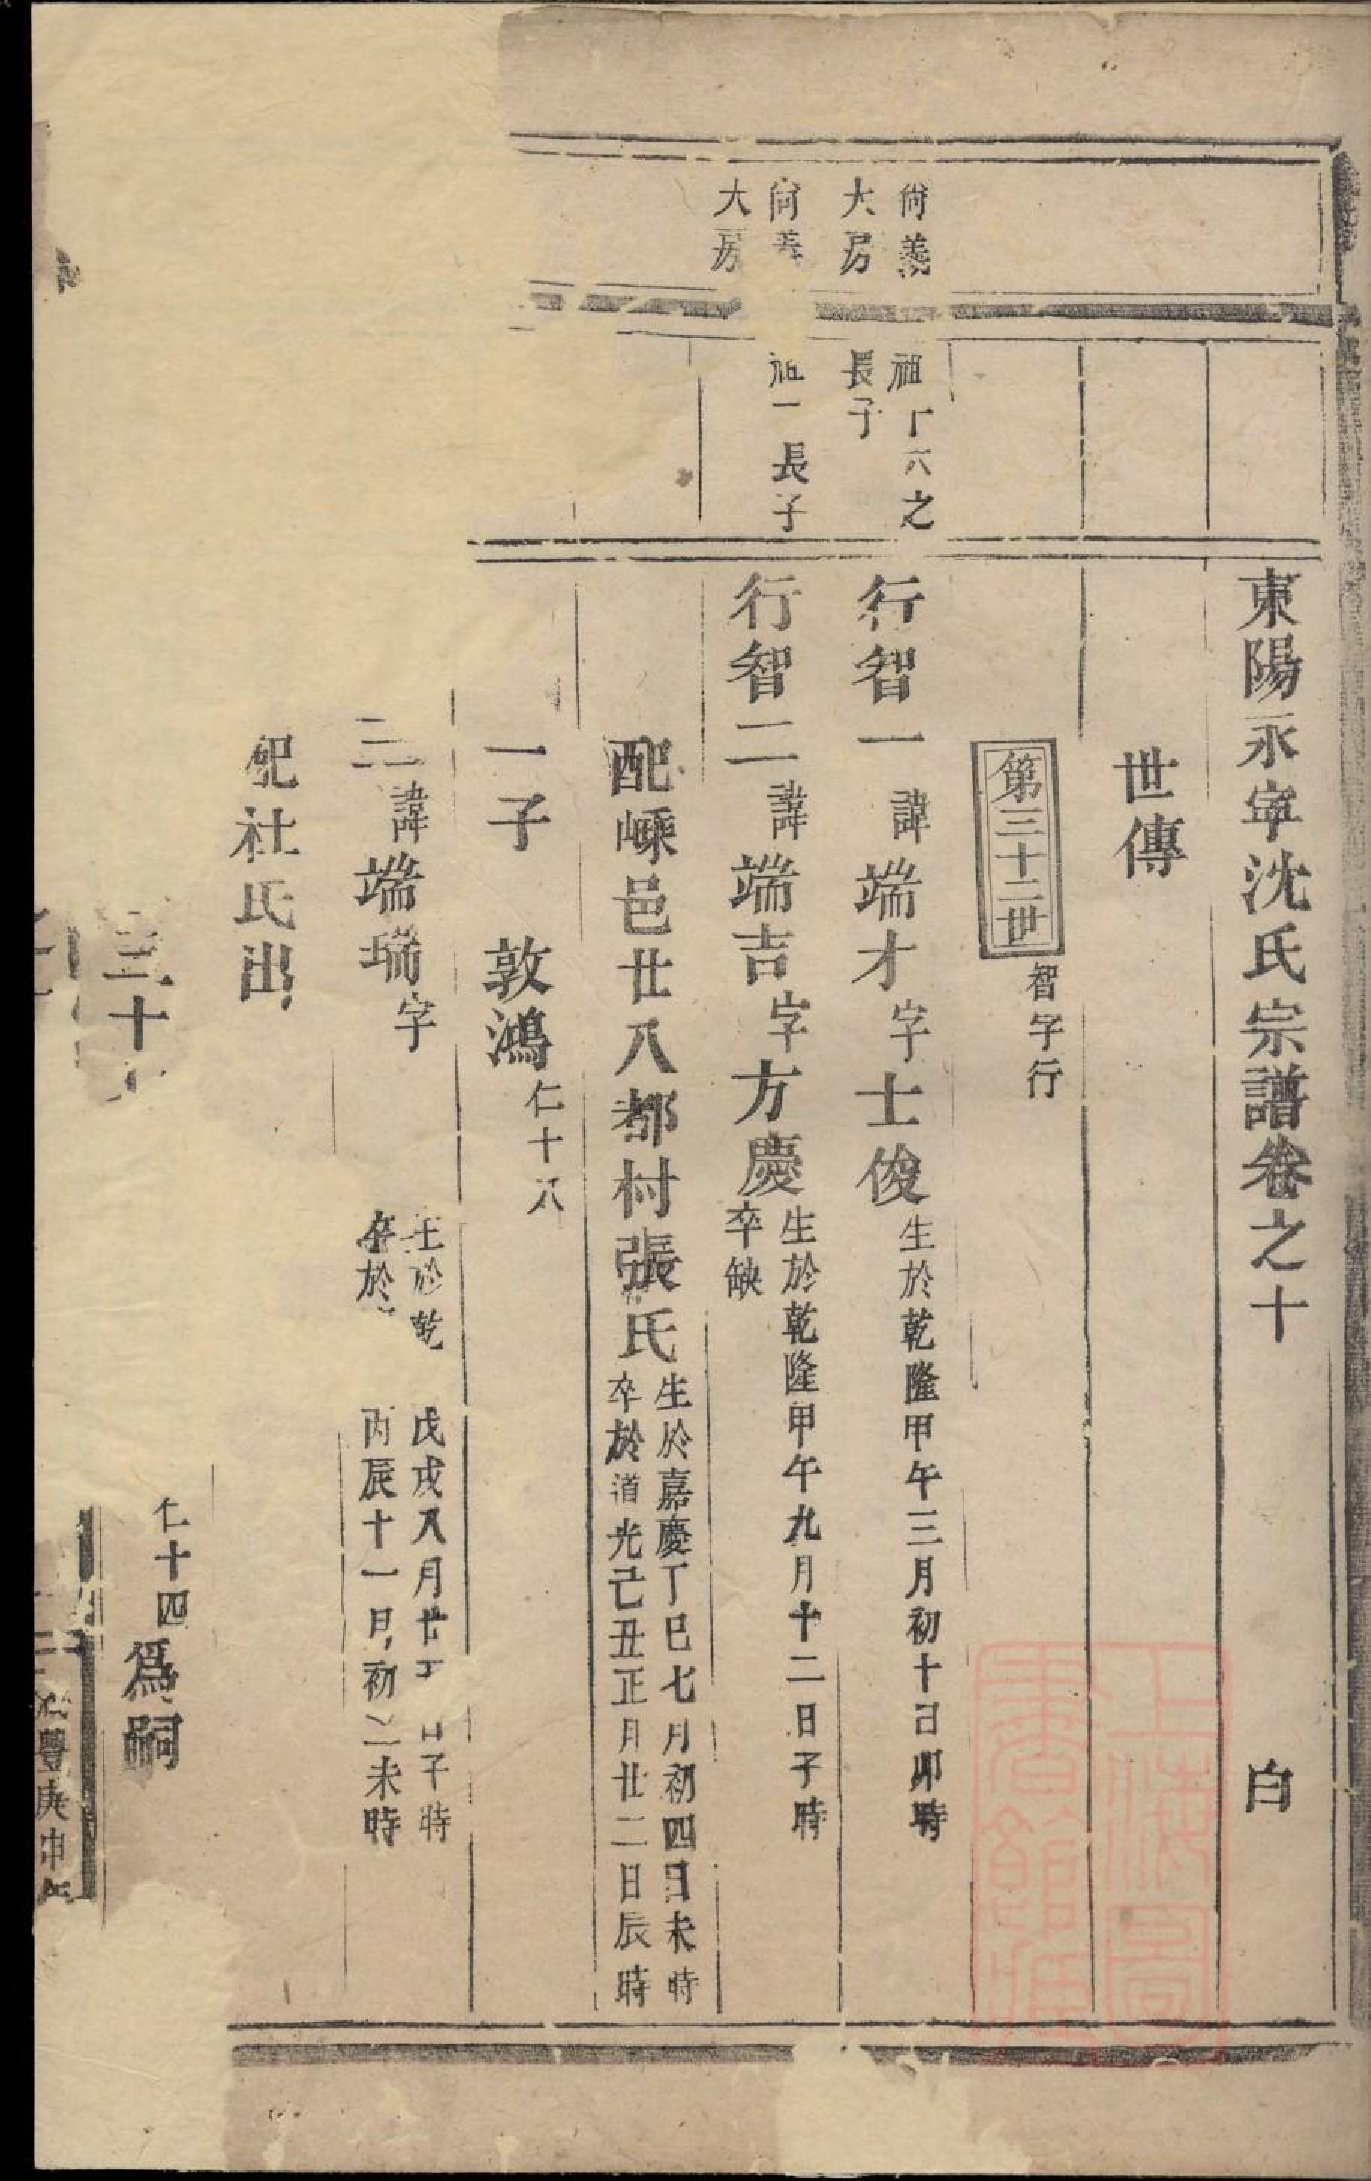 東陽永寧沈氏宗譜卷之十 白
世傳
第三十二世 智字行
尚義大房
祖十六之長子
行智一諱端才字士俊 生於乾隆甲午三月初十日卯時
尚義大房
祖一長子
行智二諱端吉字方慶 生於乾隆甲午九月十二日子時
卒缺
配嵊邑廿八都村張氏 生於嘉慶丁巳七月初四日未時
卒於道光己丑正月廿二日辰時
一子 敦鴻 仁十八
三諱端瑞字 生於乾 戊戌八月廿 日子時
卒於 丙辰十一月初 未時
配杜氏出
三十
仁十四 爲嗣
豐庚申
上海圖書館藏